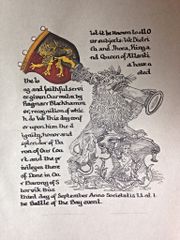 Let it be Known to all O
ur subjects: We Dietri
ch and Jhora, King a
nd Queen of Atlanti
a have n
oted
the lo
ng and faithful servi
ce given Our realm by
Ragnarr Blackhamm
er, recognition of whic
h do We this day conf
er upon him the d
ignity, honor and
splendor of Ba
ron of Our Cou
rt and the pr
ivileges there
of Done in Ou
r Barony of S
this
day of September Anno Societatis
the Battle of the Bay event.